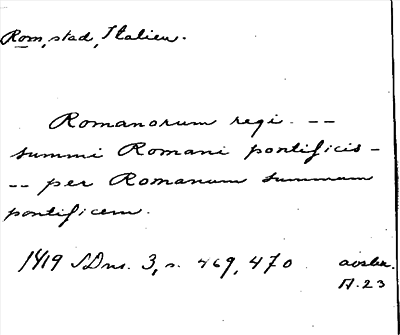 Rom, stad, Italien.
Romanorum regi. --
summi Romani pontificis -
-- per Romanum summum
pontificem.
1419 SDns. 3, s. 469, 470 avskr.
A. 23